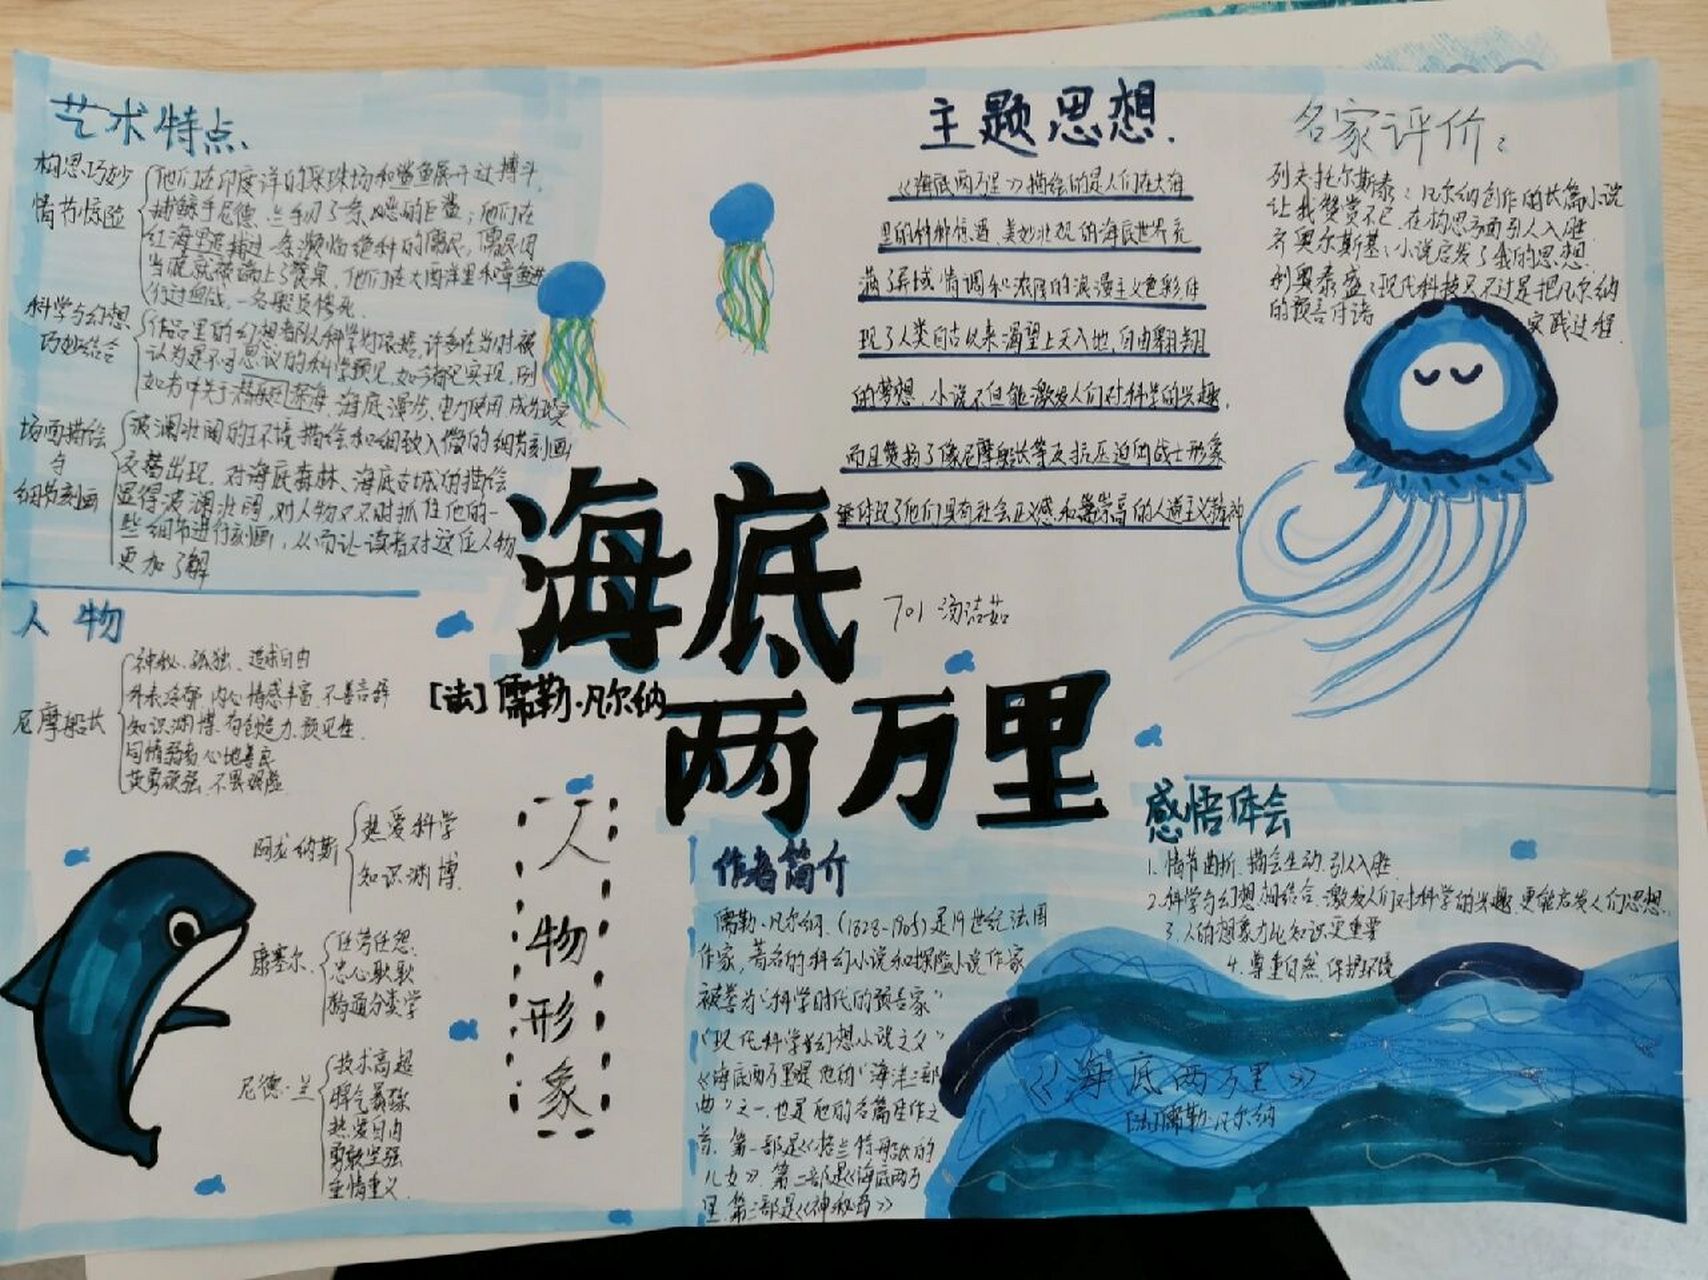 艺术特点
构思巧妙
情节惊险
他们在印度洋的采珠场和鲨鱼展开过搏斗,
捕鲸手尼德·兰手刃了条凶恶的巨鲨;他们在
红海里追捕过一条濒临绝种的儒艮,儒艮肉
当晚就被端上了餐桌,他们在大西洋里和章鱼进
行过血战,一名船员惨死.
科学与幻想
巧妙结合
作品里的幻想都以科学为依据,许多在当时被
认为是不可思议的科学预见,如今都已实现,例
如书中关于潜艇 深海、海底漫步、电力使用成为现实
场面描绘
与
细节刻画
波澜壮阔的环境描绘和细致入微的细节刻画
交替出现,对海底森林、海底古城的描绘
显得波澜壮阔,对人物又不时抓住他的一
些细节进行刻画,从而让读者对这位人物
更加了解
主题思想.
《海底两万里》描绘的是人们在大海
里的种种惊遇,美妙壮观的海底世界充
满了异域情调和浓厚的浪漫主义色彩体
现了人类自古以来渴望上天入地,自由翱翔
的梦想,小说不但能激发人们对科学的兴趣,
而且赞扬了像尼摩船长等反抗压迫的战士形象
体现了他们具有社会正义感和崇高的人道主义精神
名家评价:
列夫托尔斯泰:凡尔纳创作的长篇小说
让我赞赏不已,在构思方面引人入胜
齐奥尔斯基:小说启发了我的思想.
利奥泰盛:现代科技只不过是把凡尔纳
的预言付诸
实践过程.
海底
701 汤洁茹
[法]儒勒·凡尔纳
两万里
人物
尼摩船长
神秘、孤独、追求自由
外表冷郁,内心情感丰富,不善言辞
知识渊博.有创造力.预见性.
同情弱者,心地善良
英勇顽强.不畏艰险
阿龙纳斯
热爱科学
知识渊博.
康塞尔.
任劳任怨.
忠心耿耿
精通分类学
尼德·兰
技术高超
脾气暴躁
热爱自由
勇敢坚强
重情重义.
人
物
形
象
作者简介
儒勒·凡尔纳.(1828-1905)是19世纪法国
作家,著名的科幻小说和探险小说作家
被誉为“科学时代的预言家”
“现代科学幻想小说之父”
《海底两万里是他的“海洋三部
曲”之一,也是他的名篇佳作之
首.第一部是《格兰特船长的
儿女》.第二部是《海底两万
里.第三部是《神秘岛》
感悟体会
1.情节曲折.描绘生动.引人入胜
2.科学与幻想相结合.激发人们对科学的兴趣.更能启发人们思想.
3.人的想象力比知识更重要
4.尊重自然.保护环境
《海底两万里》
[法]儒勒·凡尔纳